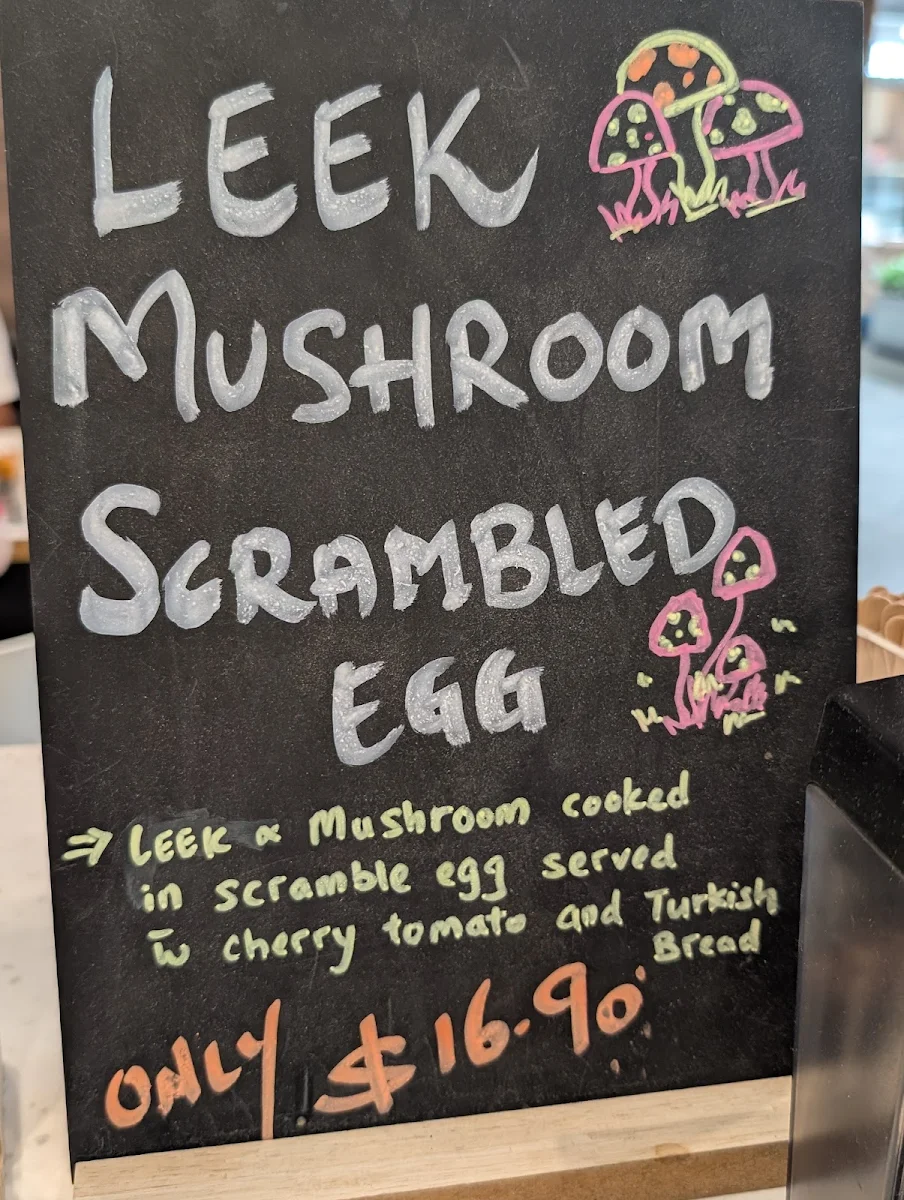 LEEK
MUSHROOM
SCRAMBLED
EGG
⇒ LEEK & Mushroom cooked
in scramble egg served
w̄ cherry tomato and Turkish
Bread
ONLY $16.90